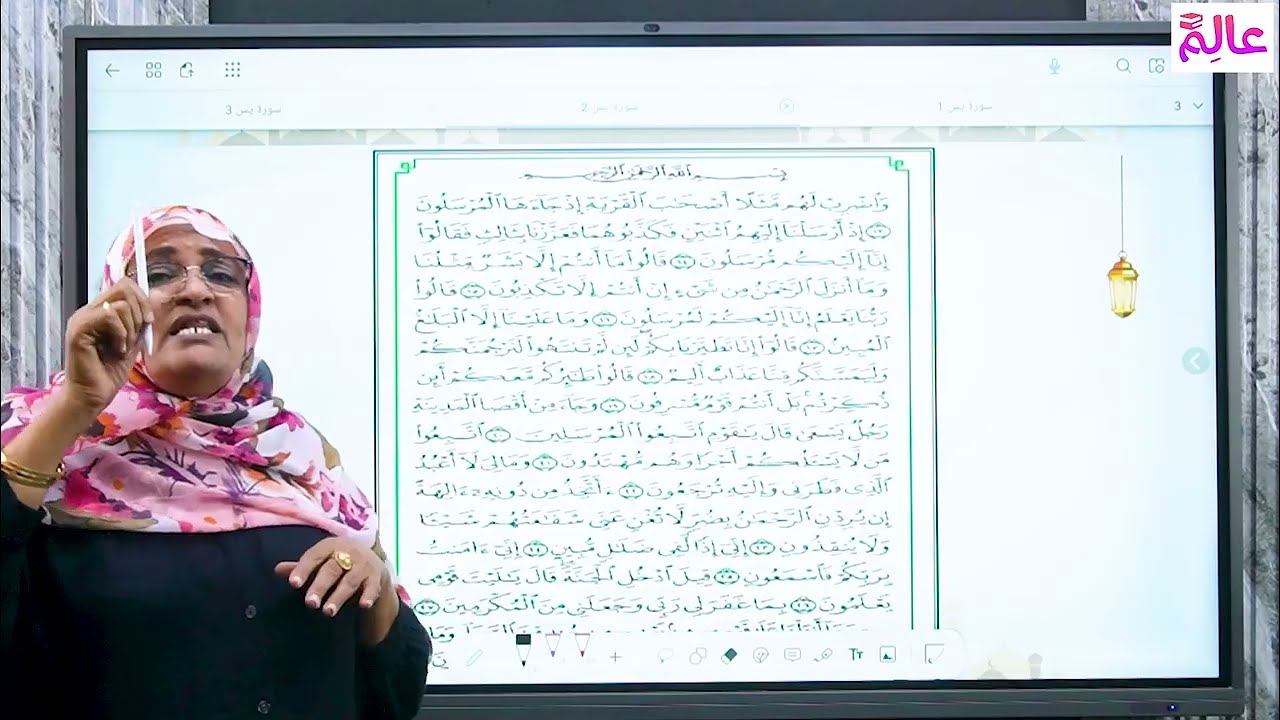 عالِم
سورة يس 3
سورة يس 2
سورة يس 1
3
بِسْمِ ٱللَّهِ ٱلرَّحْمَٰنِ ٱلرَّحِيمِ
وَٱضْرِبْ لَهُم مَّثَلًا أَصْحَٰبَ ٱلْقَرْيَةِ إِذْ جَآءَهَا ٱلْمُرْسَلُونَ
١٣ إِذْ أَرْسَلْنَآ إِلَيْهِمُ ٱثْنَيْنِ فَكَذَّبُوهُمَا فَعَزَّزْنَا بِثَالِثٍ فَقَالُوٓا۟
إِنَّآ إِلَيْكُم مُّرْسَلُونَ ١٤ قَالُوا۟ مَآ أَنتُمْ إِلَّا بَشَرٌ مِّثْلُنَا
وَمَآ أَنزَلَ ٱلرَّحْمَٰنُ مِن شَىْءٍ إِنْ أَنتُمْ إِلَّا تَكْذِبُونَ ١٥ قَالُوا۟
رَبُّنَا يَعْلَمُ إِنَّآ إِلَيْكُمْ لَمُرْسَلُونَ ١٦ وَمَا عَلَيْنَآ إِلَّا ٱلْبَلَٰغُ
ٱلْمُبِينُ ١٧ قَالُوٓا۟ إِنَّا تَطَيَّرْنَا بِكُمْ لَئِن لَّمْ تَنتَهُوا۟ لَنَرْجُمَنَّكُمْ
وَلَيَمَسَّنَّكُم مِّنَّا عَذَابٌ أَلِيمٌ ١٨ قَالُوا۟ طَٰٓئِرُكُم مَّعَكُمْ أَئِن
ذُكِّرْتُم بَلْ أَنتُمْ قَوْمٌ مُّسْرِفُونَ ١٩ وَجَآءَ مِنْ أَقْصَا ٱلْمَدِينَةِ
رَجُلٌ يَسْعَىٰ قَالَ يَٰقَوْمِ ٱتَّبِعُوا۟ ٱلْمُرْسَلِينَ ٢٠ ٱتَّبِعُوا۟
مَن لَّا يَسْـَٔلُكُمْ أَجْرًا وَهُم مُّهْتَدُونَ ٢١ وَمَا لِىَ لَآ أَعْبُدُ
ٱلَّذِى فَطَرَنِى وَإِلَيْهِ تُرْجَعُونَ ٢٢ ءَأَتَّخِذُ مِن دُونِهِۦٓ ءَالِهَةً
إِن يُرِدْنِ ٱلرَّحْمَٰنُ بِضُرٍّ لَّا تُغْنِ عَنِّى شَفَٰعَتُهُمْ شَيْـًٔا
وَلَا يُنقِذُونِ ٢٣ إِنِّىٓ إِذًا لَّفِى ضَلَٰلٍ مُّبِينٍ ٢٤ إِنِّىٓ ءَامَنتُ
بِرَبِّكُمْ فَٱسْمَعُونِ ٢٥ قِيلَ ٱدْخُلِ ٱلْجَنَّةَ قَالَ يَٰلَيْتَ قَوْمِى
يَعْلَمُونَ ٢٦ بِمَا غَفَرَ لِى رَبِّى وَجَعَلَنِى مِنَ ٱلْمُكْرَمِينَ ٢٧
Tт